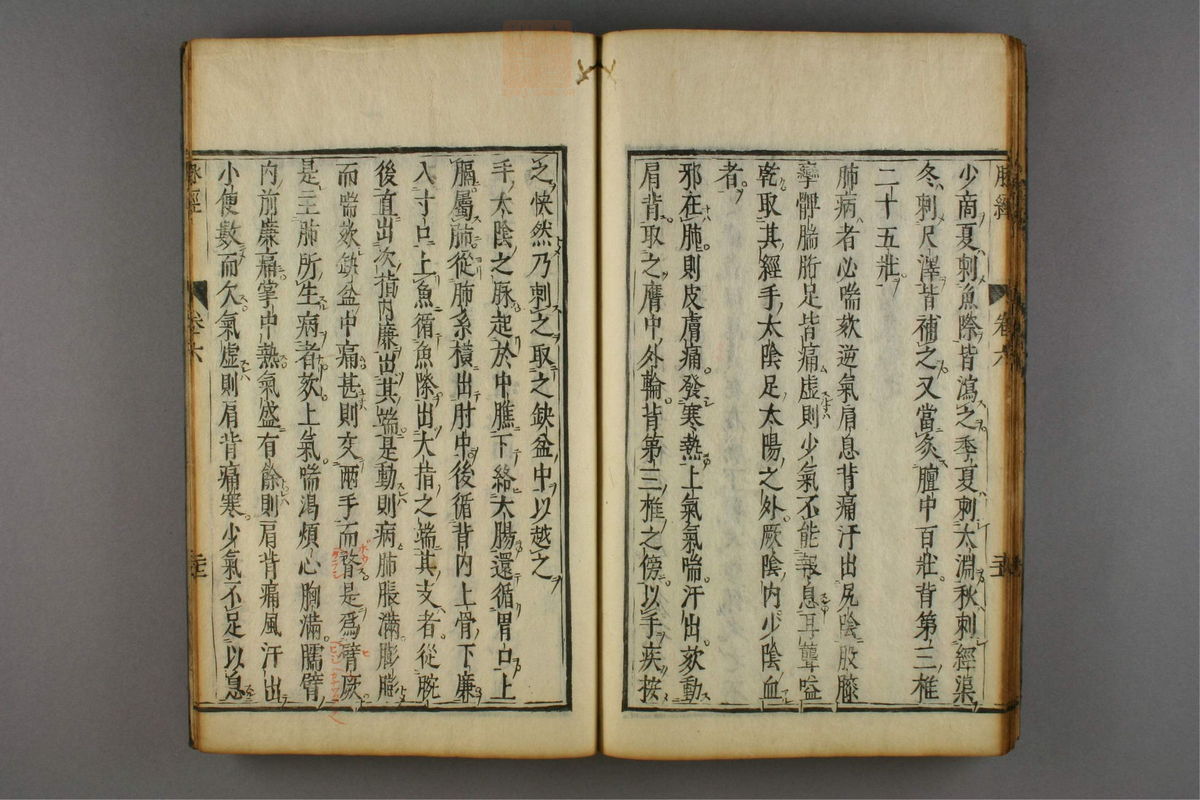 少商夏刺魚際皆瀉之季夏刺太淵秋刺經渠
冬刺尺澤皆補之又當灸膻中百壯背第三椎
二十五壯
肺病者必喘欬逆氣肩息背痛汗出尻陰股膝
攣髀腨胻足皆痛虛則少氣不能報息耳聾嗌
乾取其經手太陰足太陽之外厥陰內少陰血
者
邪在肺則皮膚痛發寒熱上氣氣喘汗出欬動
肩背取之膺中外輪背第三椎之傍以手疾按
之快然乃刺之取之缺盆中以越之
手太陰之脉起於中膲下絡大腸還循胃口上
膈屬肺從肺系橫出肘中後循背內上骨下廉
入寸口上魚循魚際出大指之端其支者從腕
後直出次指內廉出其端是動則病肺脹滿膨膨
而喘欬缺盆中痛甚則交兩手而瞀是爲臂厥
是主肺所生病者欬上氣喘渴煩心胸滿臑臂
內前廉痛掌中熱氣盛有餘則肩背痛風汗出
小便數而欠氣虛則肩背痛寒少氣不足以息
脉經
卷六